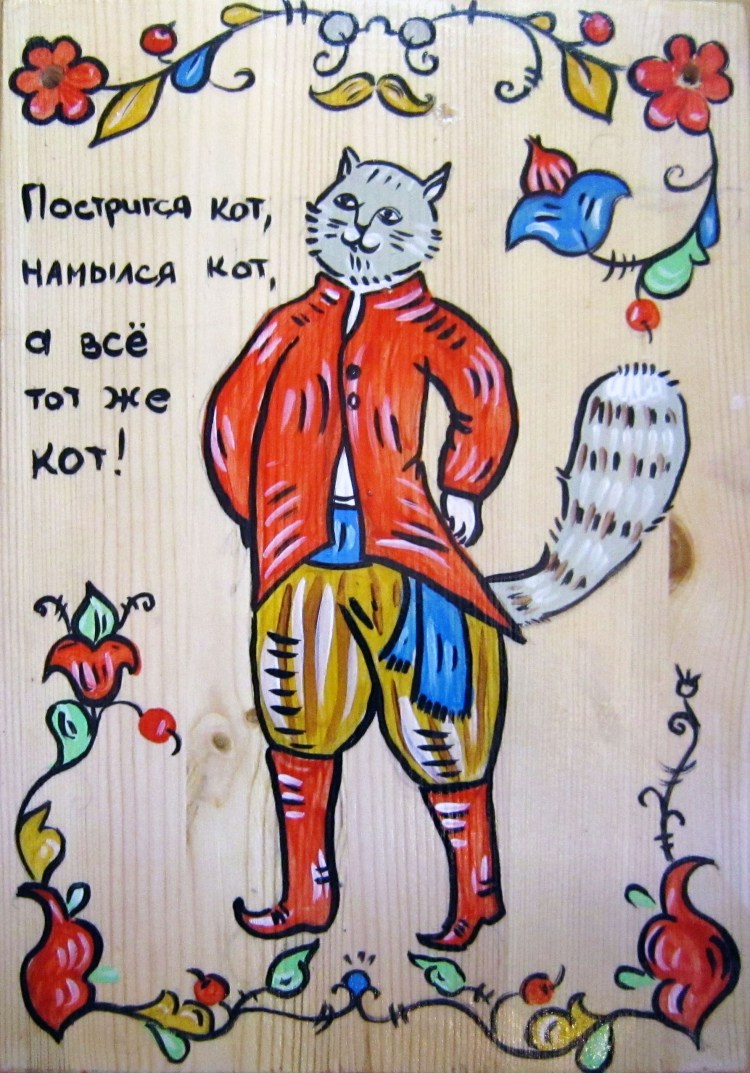 Постригся кот,
намылся кот,
а всё
тот же
кот!